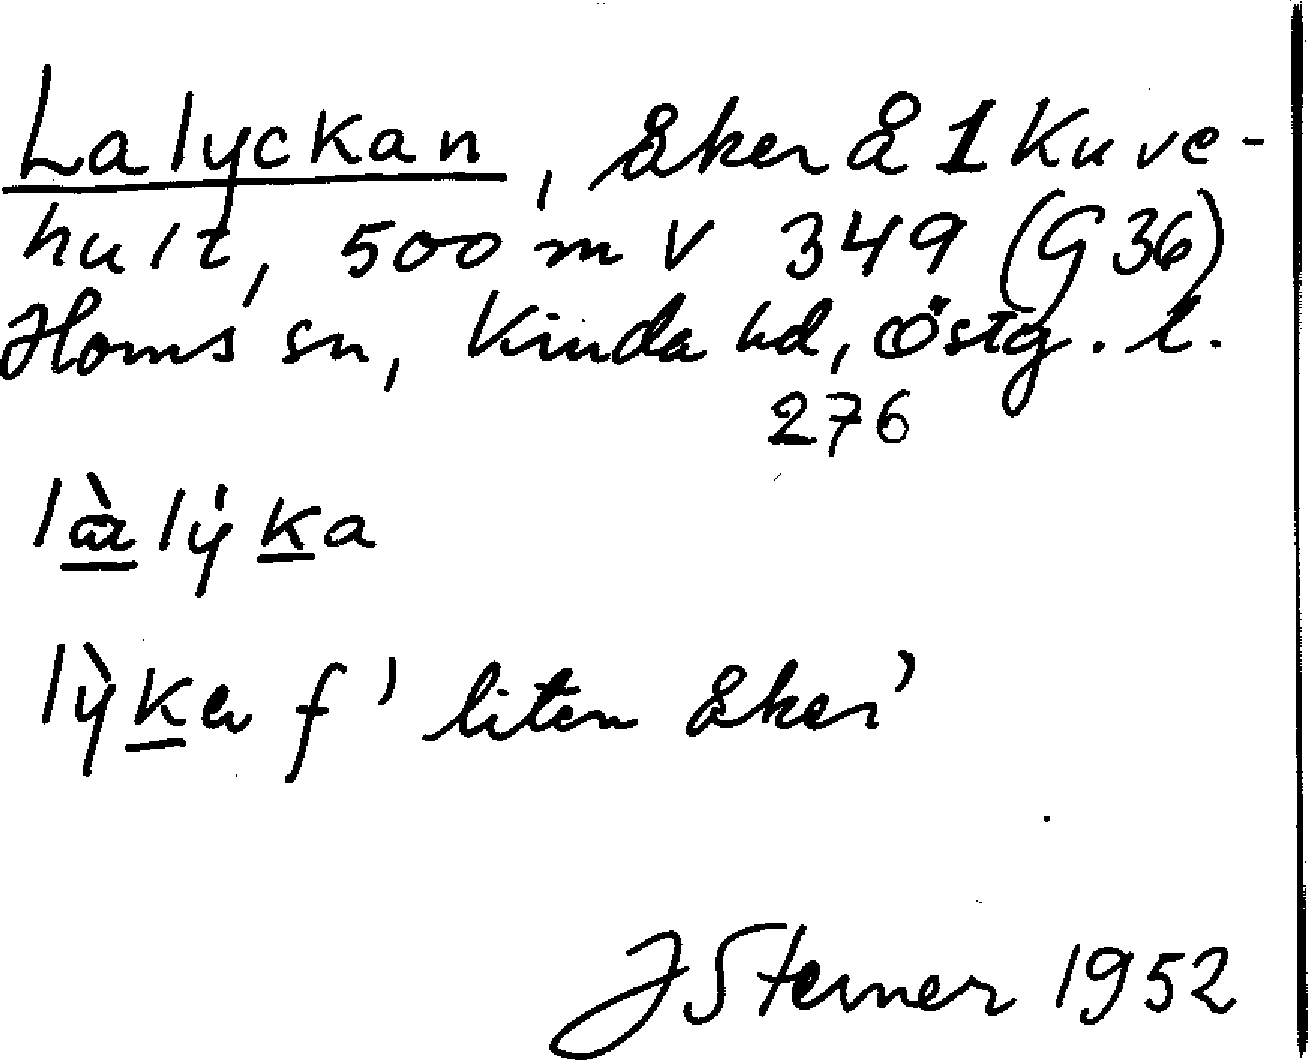 Lalyckan, åker å 1 Kuve-
hult, 500 m V 349 (G 36)
Horns sn, Kinda hd, Östg. l.
276
là̱lẏḵa
lỳḵa f ' liten åker'
J Sterner 1952